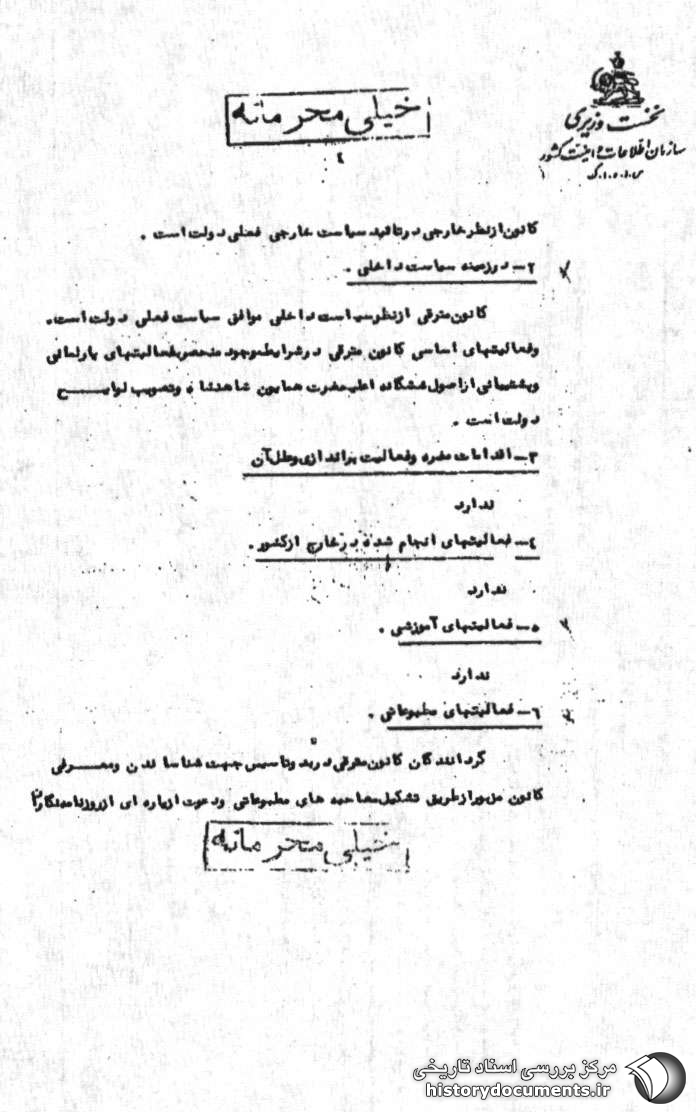 نخست وزیری
سازمان اطلاعات و امنیت کشور
س.ا.و.ا.ک
خیلی محرمانه
کانون از نظر خارجی در تائید سیاست خارجی فعلی دولت است .
۲- در زمینه سیاست داخلی .
کانون مترقی از نظر سیاست داخلی موافق سیاست فعلی دولت است.
وفعالیتهای اساسی کانون مترقی در شرایط موجود منحصر بفعالیتهای پارلمانی
وپشتیبانی از اصول ششگانه اعلیحضرت همایون شاهنشاه وتصویب لوایح
دولت است .
۳- اقدامات مضره وفعالیت براندازی وعلل آن
ندارد
٤- فعالیتهای انجام شده در خارج از کشور .
ندارد
۵- فعالیتهای آموزشی .
ندارد
٦- فعالیتهای مطبوعاتی .
گردانندگان کانون مترقی در بدو تاسیس جهت شناساندن ومعرفی
کانون مزبور از طریق تشکیل مصاحبه های مطبوعاتی ودعوت از پاره ای از روزنامه نگاران
خیلی محرمانه
مرکز بررسی اسناد تاریخی
historydocuments.ir